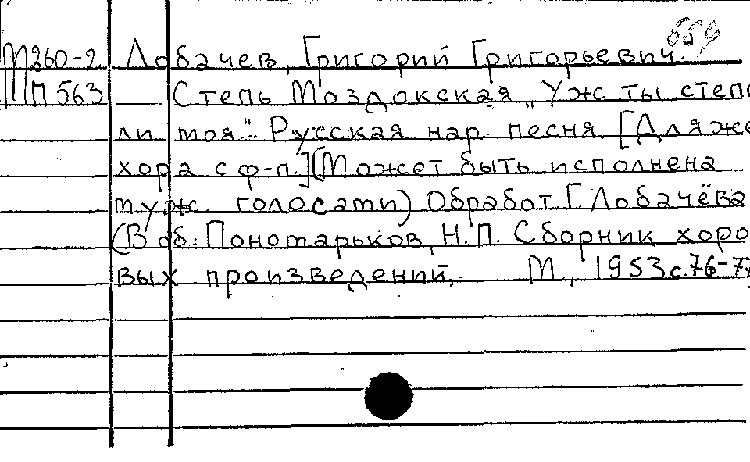 659
М260-2 Лобачев, Григорий Григорьевич.
П 563 Степь Моздокская „Уж ты степь
ли моя". Русская нар. песня [Для же
хора с ф-п.] (Может быть исполнена
муж. голосами) Обработ. Г. Лобачёва
(В об: Пономарьков, Н.П. Сборник хоро
вых произведений, М., 1953 с. 76-77